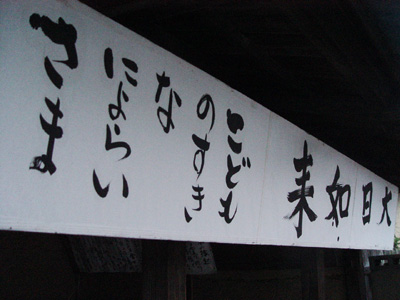 大日如来
こども
のすきい
な
にょらい
さま